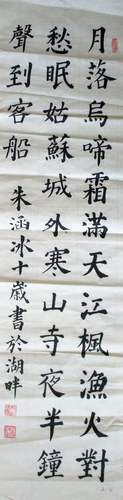 月落烏啼霜滿天江楓漁火對
愁眠姑蘇城外寒山寺夜半鐘
聲到客船
朱涵冰十歲書於湖畔